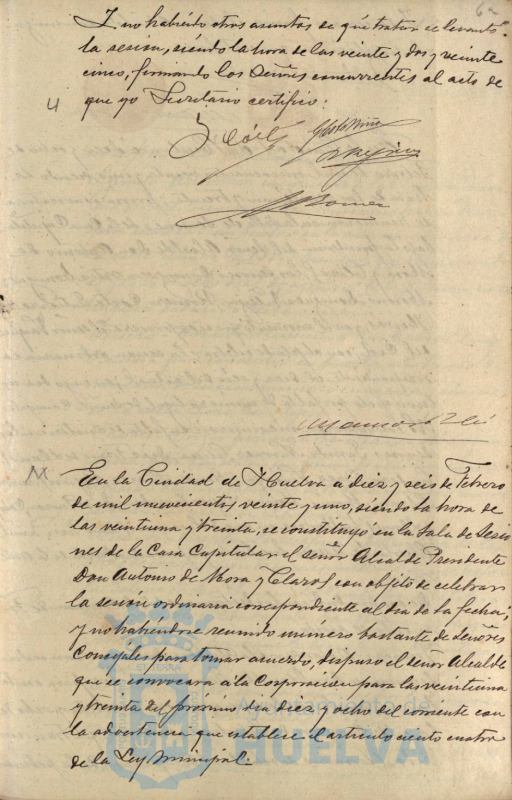 Y no habiendo otros asuntos de qué tratar se levantó
la sesión, siendo la hora de las veinte y dos y veinte
cinco, firmando los Señores concurrentes al acto de
que yo Secretario certifico:
En la Ciudad de Huelva á diez y seis de Febrero
de mil novecientos veinte y uno, siendo la hora de
las veintiuna y treinta, se constituyó en la Sala de Sesio
nes de la Casa Capitular el señor Alcalde Presidente
Don Antonio de Mora y Claros con objeto de celebrar
la sesión ordinaria correspondiente al dia de la fecha;
y no habiendose reunido número bastante de Señores
Concejales para tomar acuerdo, dispuso el señor Alcalde
que se convocara a la Corporación para las veintiuna
y treinta del próximo dia diez y ocho del corriente con
la advertencia que establece el artículo ciento cuatro
de la Ley Municipal.
HUELVA